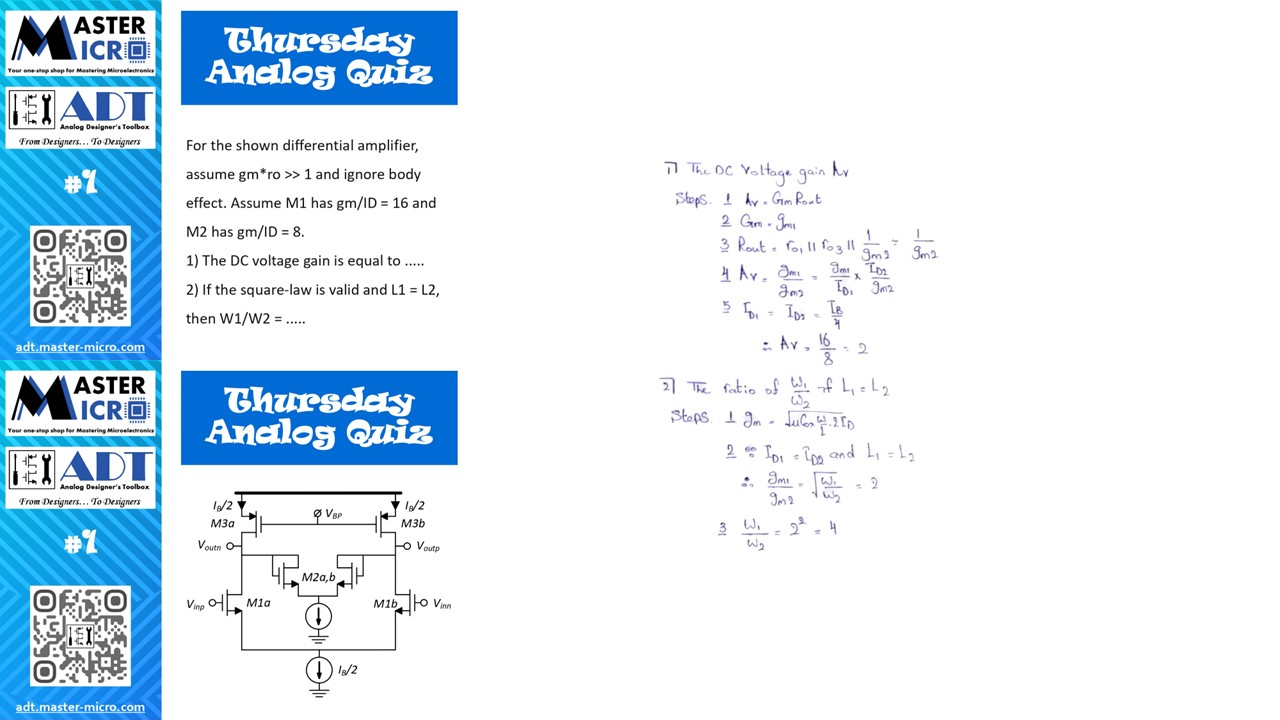 MASTER
MICRO
Your one-stop shop for Mastering Microelectronics
ADT
Analog Designer's Toolbox
From Designers… To Designers
#9
adt.master-micro.com
Thursday
Analog Quiz
For the shown differential amplifier,
assume gm*ro >> 1 and ignore body
effect. Assume M1 has gm/ID = 16 and
M2 has gm/ID = 8.
1) The DC voltage gain is equal to .....
2) If the square-law is valid and L1 = L2,
then W1/W2 = .....
MASTER
MICRO
Your one-stop shop for Mastering Microelectronics
ADT
Analog Designer's Toolbox
From Designers… To Designers
#9
adt.master-micro.com
Thursday
Analog Quiz
IB/2 IB/2
M3a VBP M3b
Voutn Voutp
M2a,b
Vinp M1a M1b Vinn
IB/2
1) The DC Voltage gain Av
Steps. 1 Av = Gm Rout
2 Gm = gm1
3 Rout = ro1 || ro3 || 1/gm2 = 1/gm2
4 Av = gm1/gm2 = gm1/ID1 × ID2/gm2
5 ID1 = ID2 = IB/4
∴ Av = 16/8 = 2
2) The ratio of W1/W2 if L1 = L2
Steps. 1 gm = √(uCox W/L . 2ID)
2 ∵ ID1 = ID2 and L1 = L2
∴ gm1/gm2 = √(W1/W2) = 2
3 W1/W2 = 2² = 4